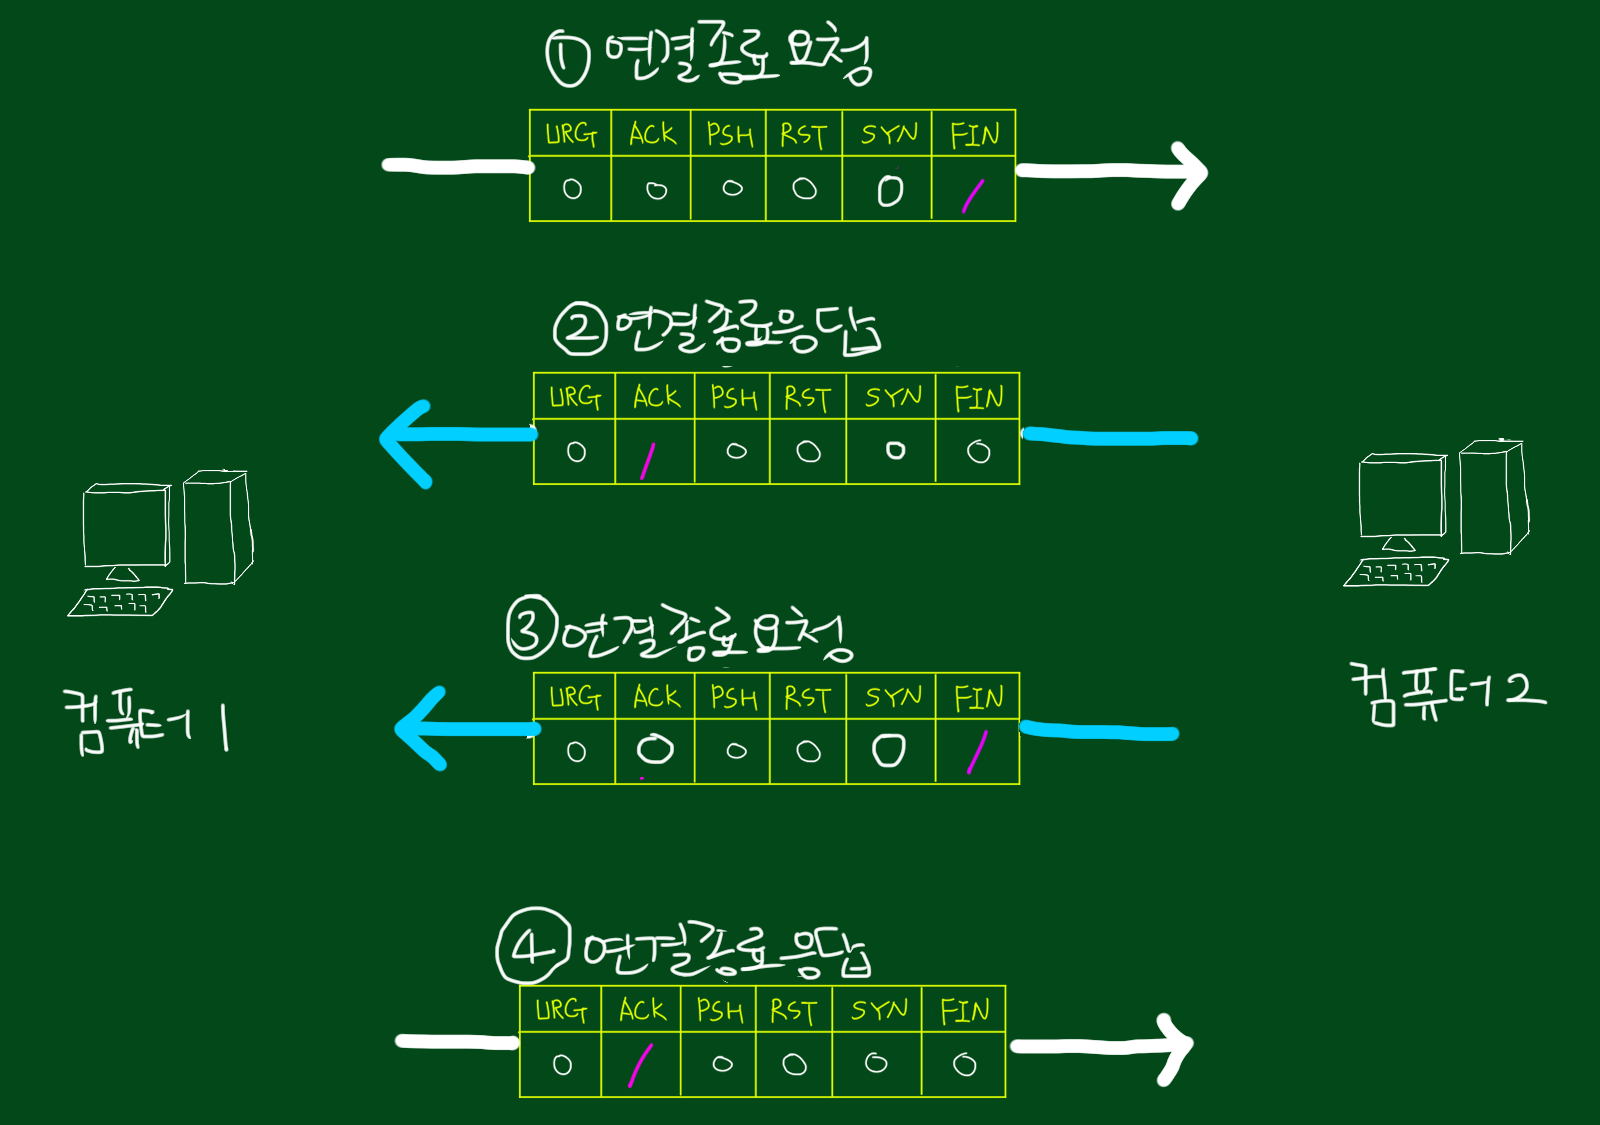 ① 연결종료 요청
URG ACK PSH RST SYN FIN
0 0 0 0 0 1
② 연결종료응답
URG ACK PSH RST SYN FIN
0 1 0 0 0 0
③ 연결종료요청
URG ACK PSH RST SYN FIN
0 0 0 0 0 1
컴퓨터 1
컴퓨터 2
④ 연결종료응답
URG ACK PSH RST SYN FIN
0 1 0 0 0 0